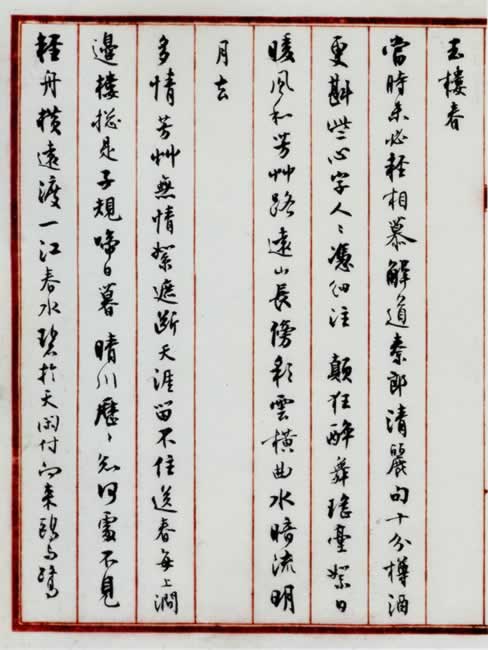 玉樓春
當時未必輕相慕解道秦郎清麗句十分樽酒
更斟些心字人〻憑細注顛狂醉舞瑤臺絮日
暖風和芳艸路遠山長傍彩雲橫曲水暗流明
月去
多情芳艸無情絮遮斷天涯留不住送春每上澗
邊樓總是子規啼日暮晴川歷〻知何處不見
輕舟橫遠渡一江春水碧於天閑付向來鷗與鷺